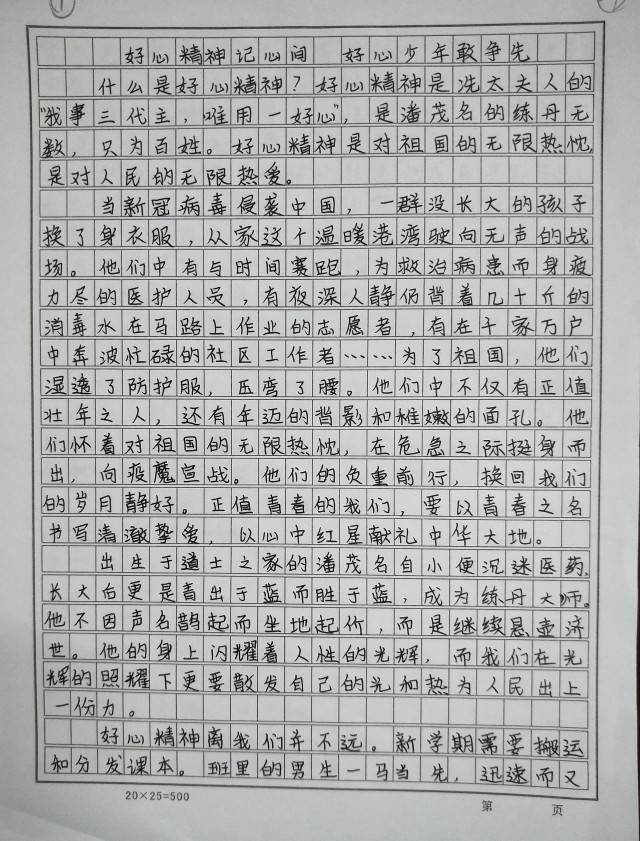 ①
好心精神记心间 好心少年敢争先
什么是好心精神？好心精神是冼太夫人的
“我事三代主，唯用一好心”，是潘茂名的练丹无
数，只为百姓。好心精神是对祖国的无限热忱，
是对人民的无限热爱。
当新冠病毒侵袭中国，一群没长大的孩子
换了身衣服，从家这个温暖港湾驶向无声的战
场。他们中有与时间赛跑，为救治病患而身疲
力尽的医护人员，有夜深人静仍背着几十斤的
消毒水在马路上作业的志愿者，有在千家万户
中奔波忙碌的社区工作者……为了祖国，他们
湿透了防护服，压弯了腰。他们中不仅有正值
壮年之人，还有年迈的背影和稚嫩的面孔。他
们怀着对祖国的无限热忱，在危急之际挺身而
出，向疫魔宣战。他们的负重前行，换回我们
的岁月静好。正值青春的我们，要以青春之名
书写清澈挚爱，以心中红星献礼中华大地。
出生于道士之家的潘茂名自小便沉迷医药，
长大后更是青出于蓝而胜于蓝，成为练丹大师。
他不因声名鹊起而坐地起价，而是继续悬壶济
世。他的身上闪耀着人性的光辉，而我们在光
辉的照耀下更要散发自己的光和热为人民出上
一份力。
好心精神离我们并不远。新学期需要搬运
和分发课本。班里的男生一马当先，迅速而又
20×25=500 第 页